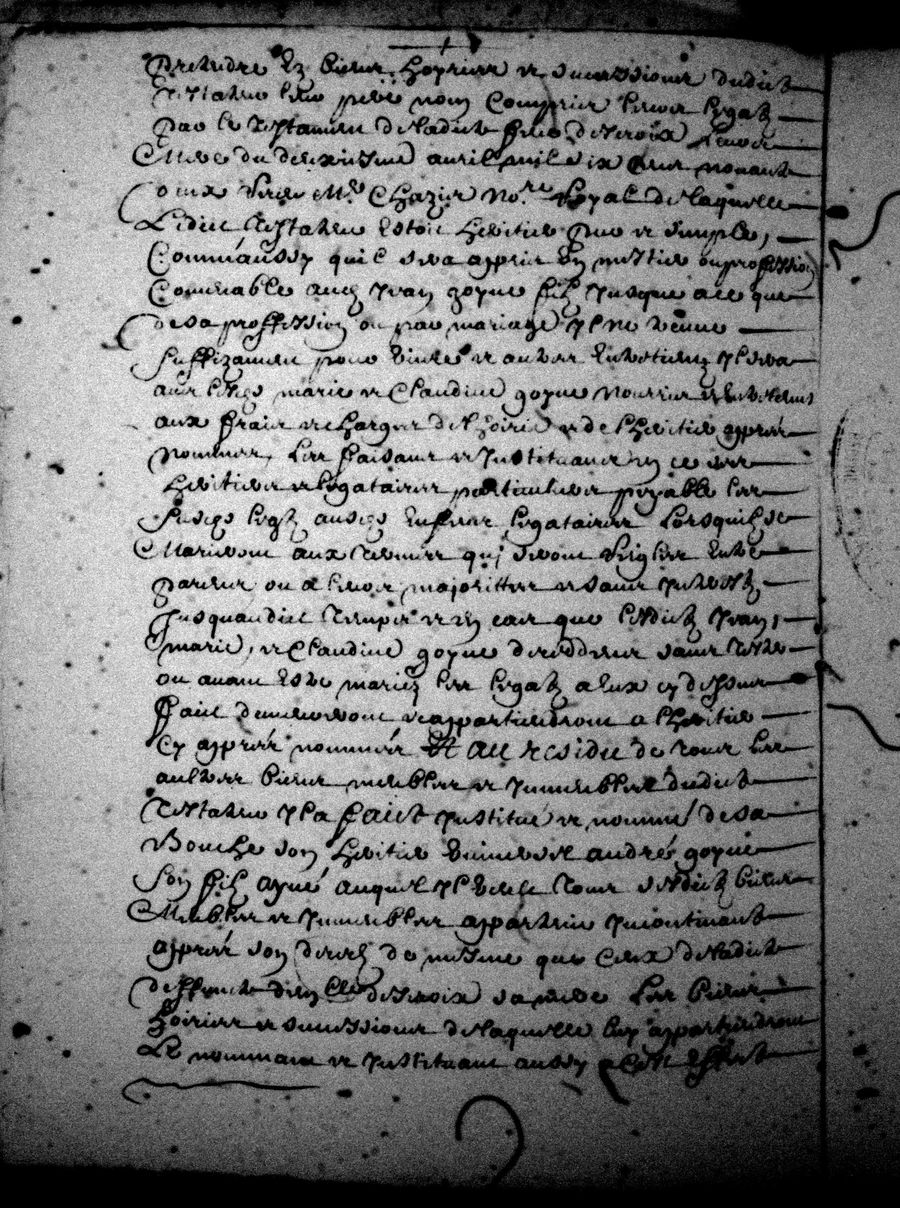 pretendre ez biens hoyries et successions dudict
testateur leur pere non comprins leurs legatz
par le testament de ladicte feue desicroix leur
Mere du deuxiesme auril mil six cens nonante
receu Me Chazus Nore Royal de laquelle
Ledict testateur estoit heritier pur et simple,
Comme aussy quil sera apprins un mestier ou proffession
Conuenable aud Yvan goyne filz jusque a ce que
de sa proffession ou par mariage yl ne treuue
suffizament pour viure et autres entretiens yl sera
aues lesdes marie et Claudine goyne nourries et entretenus
aux fraix et charges de lhoirie et de lheritier apprès
nommer, Les faisant et Instituant en ce ses
heritiers et legatairer particuliers payable les
susdes legtz ausdes enfans legataires Lorsquils se
Marieront aux termes quj seront reigles entre
parens ou a leurs majorittes et sans Interestz
Jusquaudict temps et en cas que lesdictz Yvan,
marie, et Claudine goyne deceddent sans tester
ou auant estre mariez les legatz a eux cy dessus
faict demeureront et appartiendront a lheritier
Cy apprès nommé Et au residu de tous les
aultres biens meubles et Immeubles dudict
testateur yl a faict Institué et nommé de sa
Bouche son heritier vniuersel andré goyne
son filz ayné auquel yl veult tous sesdictz biens
Meubles et Immeubles appartenir Incontinent
apprès son decedz de mesme que Ceux de ladicte
deffuncte desicroix sa mere Les biens
hoiries et successions de laquelle luy appartiendront
Le nommant et Instituant aussy a cest effect